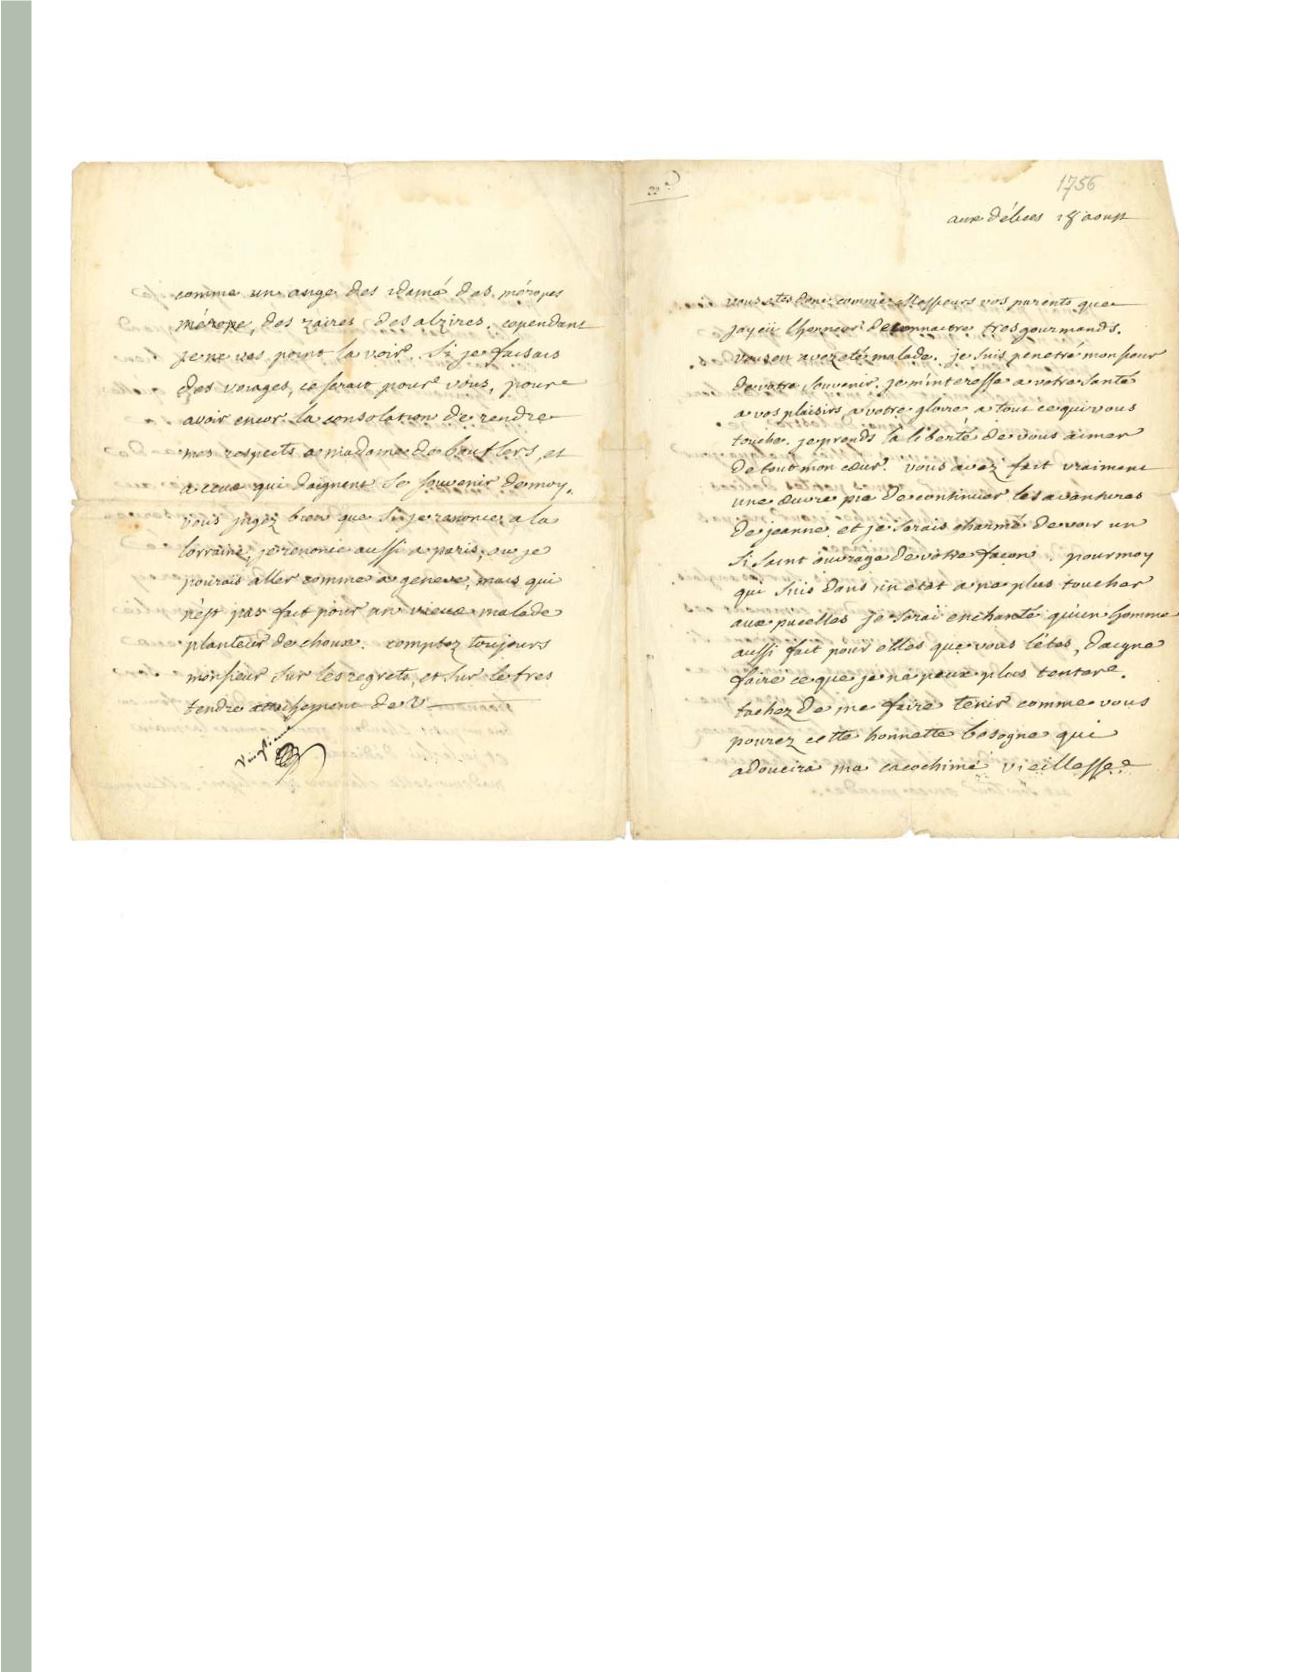 1756
aux délices 18 aoust
vous etes donc comme Messieurs vos parents que
jay eü lhonneur de connaitre tres gourmands.
vous en avez eté malade. je suis penetré monsieur
de votre souvenir. je m'interesse a votre santé
a vos plaisirs, a votre gloire a tout ce qui vous
touche. je prends la liberté de vous aimer
de tout mon cœur. vous avez fait vraiment
une œuvre pie de continuer les avantures
de jeanne, et je serais charmé de voir un
si saint ouvrage de votre façon. pour moy
qui suis dans un etat a ne plus toucher
aux pucelles je serai enchanté qu'un homme
aussi fait pour elles que vous l'étes, daigne
faire ce que je ne peux plus tenter.
tachez de me faire tenir comme vous
pourez cette honnette besogne qui
adoucira ma cacochime vieillesse.
comme un ange des idamé des méropes
mérope, des zaires des alzires. cependant
je ne vas point la voir. si je faisais
des voiages, ce serait pour vous, pour
avoir encor la consolation de rendre
mes respects a madame de bouflers, et
a ceux qui daignent se souvenir de moy.
vous jugez bien que si je renonce a la
lorraine, je renonce aussi a paris, ou je
pourais aller comme a geneve, mais qui
n'est pas fait pour un vieux malade
planteur de choux. comptez toujours
monsieur sur les regrets, et sur le tres
tendre attachement de V